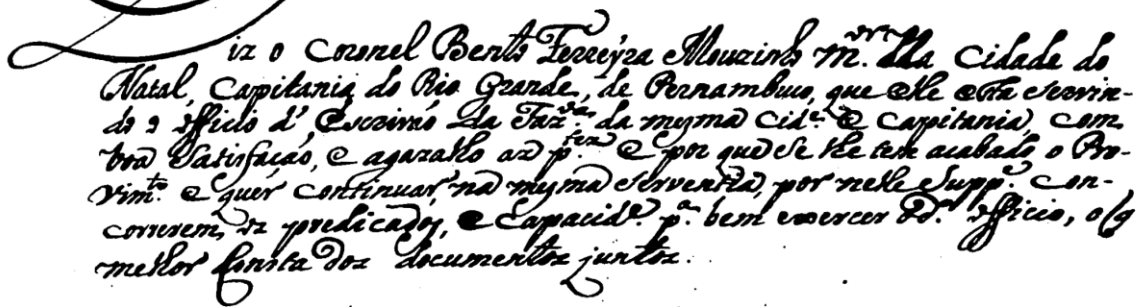 Diz o Coronel Bento Ferreyra Mouzinho m.ᵒʳ da Cidade do
Natal, Capitania do Rio Grande, de Pernambuco, que elle está servin-
do o officio d' Escrivão da Faz.ᵈᵃ da mesma Cid.ᵉ e Capitania, com
boa satisfação, e agazalho as p.ᵗᵉˢ e por que se lhe tem acabado o Pro-
vim.ᵗᵒ e quer continuar, na mesma serventia, por nelle Supp.ᵉ con-
correrem, os predicados, e Capacid.ᵉ p.ᵃ bem exercer o d.ᵒ officio, o q̃
melhor Consta dos documentos juntos.